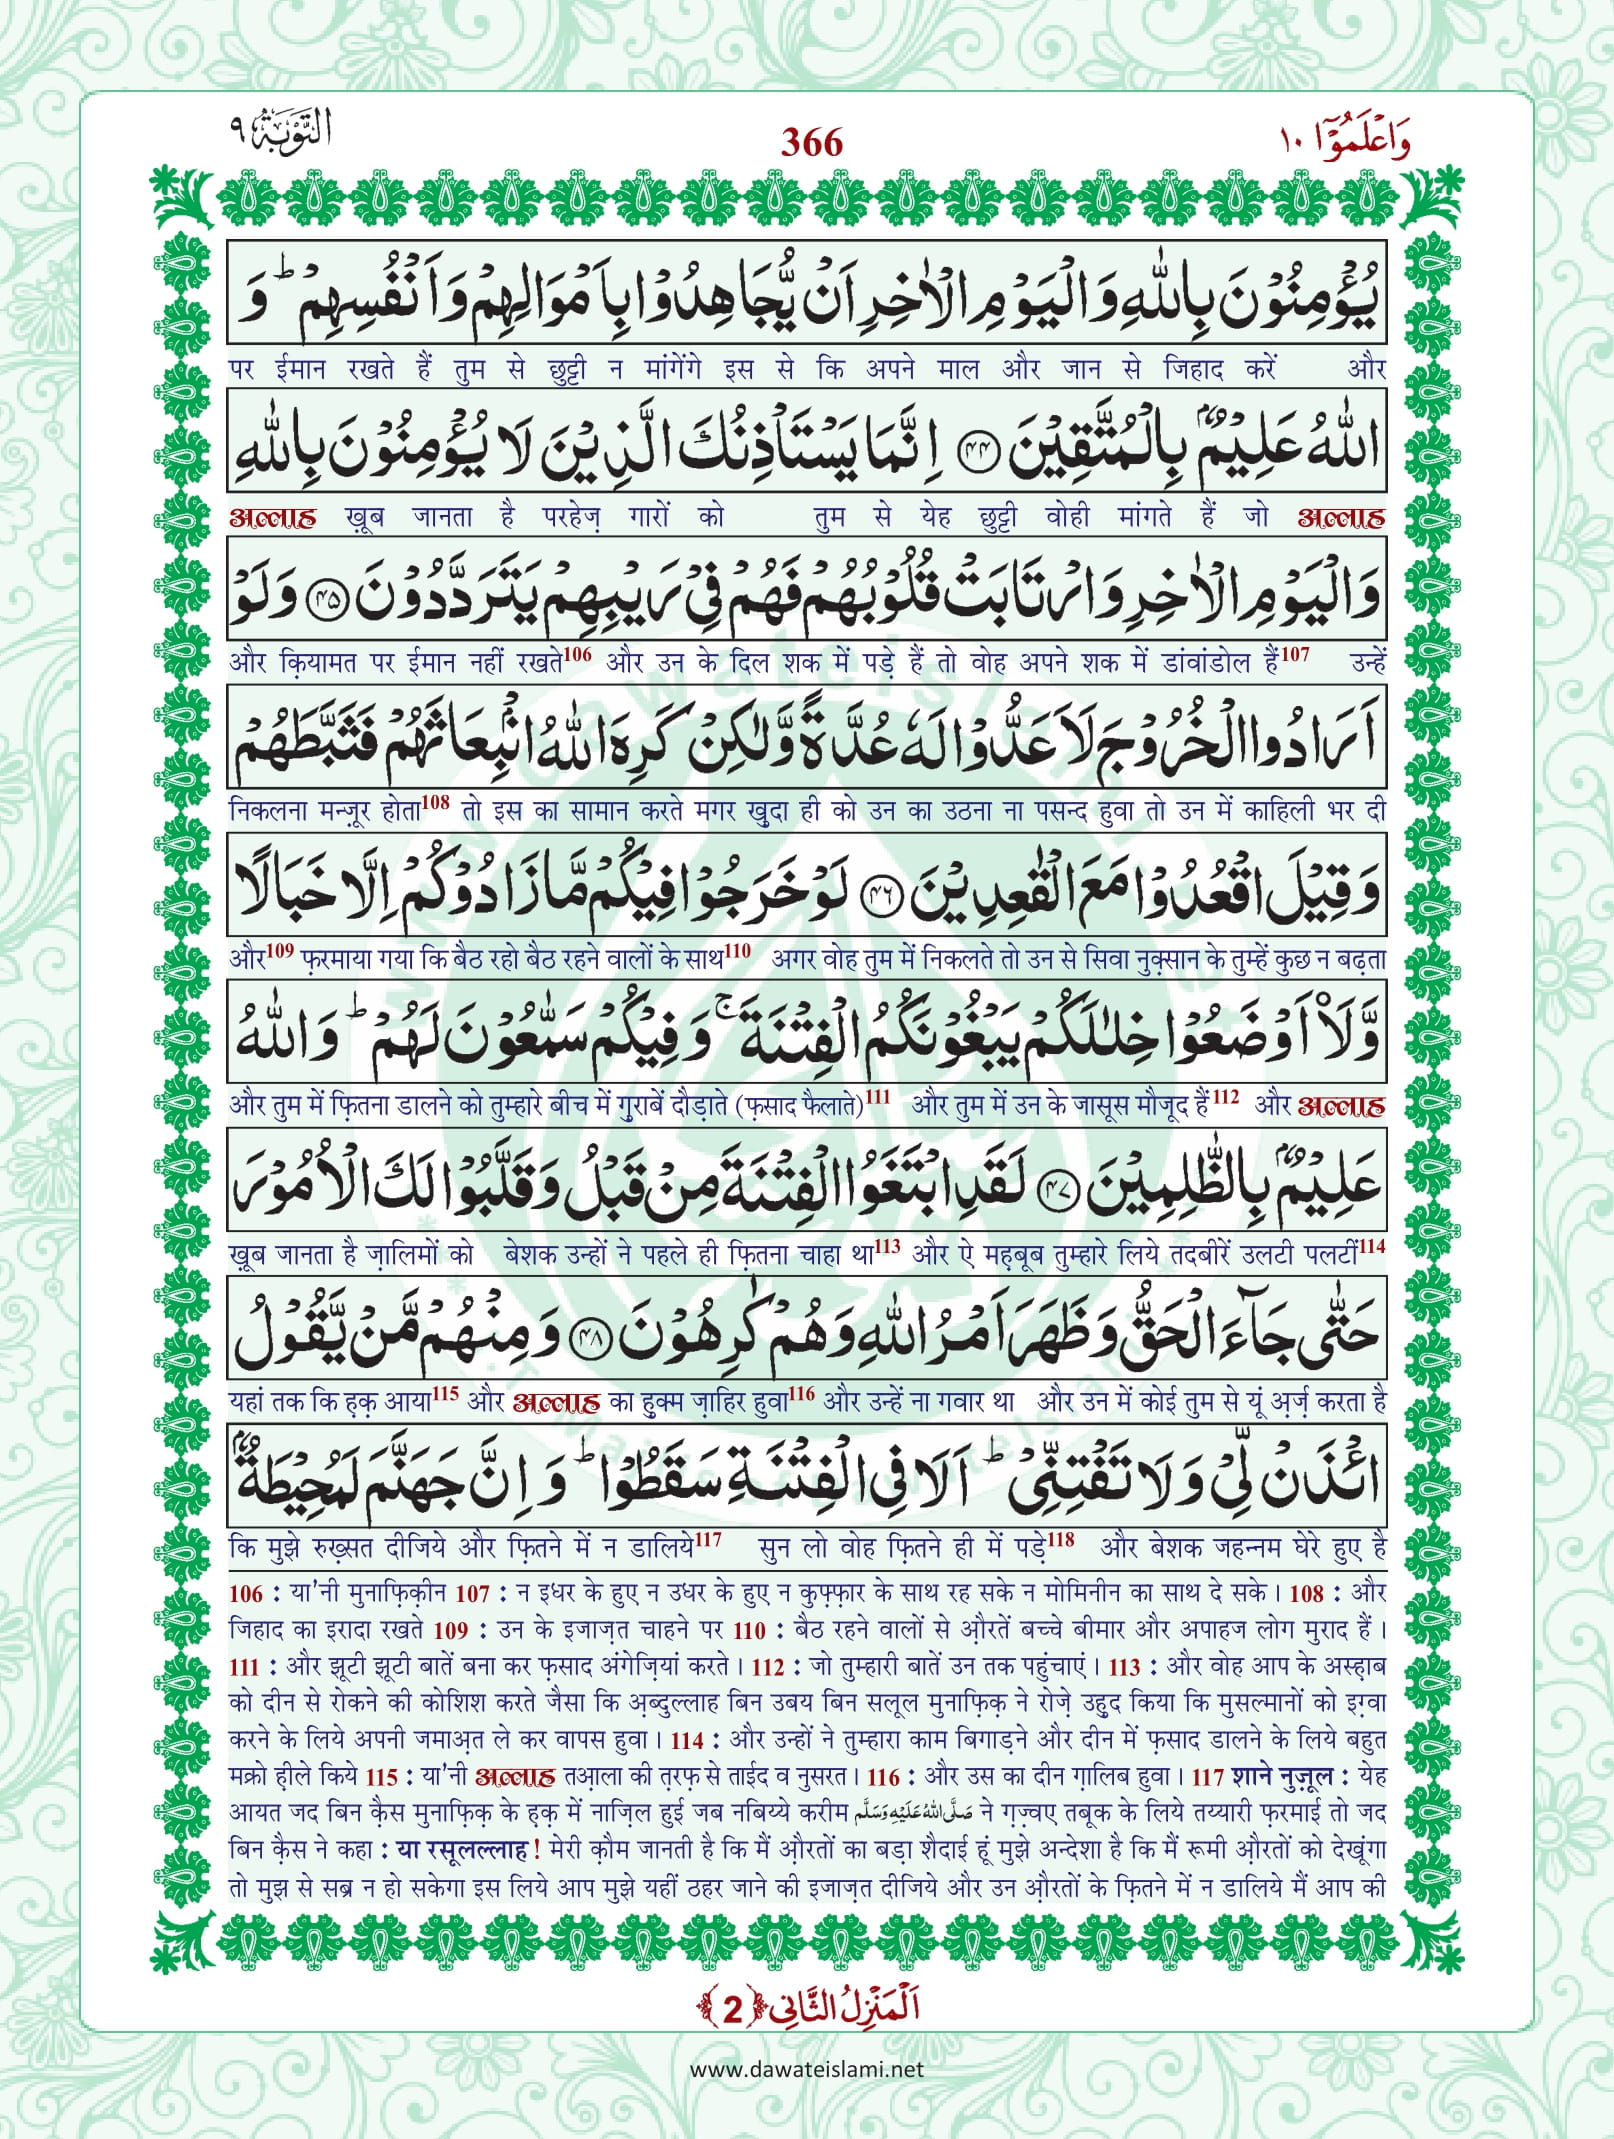 وَاعْلَمُوْۤا ١٠
366
التَّوْبَة ٩
يُؤْمِنُوْنَ بِاللّٰهِ وَالْيَوْمِ الْاٰخِرِ اَنْ یُّجَاهِدُوْا بِاَمْوَالِهِمْ وَاَنْفُسِهِمْ ؕ وَ
पर ईमान रखते हैं तुम से छुट्टी न मांगेंगे इस से कि अपने माल और जान से जिहाद करें और
اللّٰهُ عَلِیْمٌۢ بِالْمُتَّقِیْنَ ﴿۴۴﴾ اِنَّمَا یَسْتَاْذِنُكَ الَّذِیْنَ لَا یُؤْمِنُوْنَ بِاللّٰهِ
अल्लाह ख़ूब जानता है परहेज़ गारों को तुम से येह छुट्टी वोही मांगते हैं जो अल्लाह
وَالْیَوْمِ الْاٰخِرِ وَارْتَابَتْ قُلُوْبُهُمْ فَهُمْ فِیْ رَیْبِهِمْ یَتَرَدَّدُوْنَ ﴿۴۵﴾ وَلَوْ
और क़ियामत पर ईमान नहीं रखते106 और उन के दिल शक में पड़े हैं तो वोह अपने शक में डांवांडोल हैं107 उन्हें
اَرَادُوا الْخُرُوْجَ لَاَعَدُّوْا لَهٗ عُدَّةً وَّلٰكِنْ كَرِهَ اللّٰهُ انْۢبِعَاثَهُمْ فَثَبَّطَهُمْ
निकलना मन्ज़ूर होता108 तो इस का सामान करते मगर ख़ुदा ही को उन का उठना ना पसन्द हुवा तो उन में काहिली भर दी
وَقِیْلَ اقْعُدُوْا مَعَ الْقٰعِدِیْنَ ﴿۴۶﴾ لَوْ خَرَجُوْا فِیْكُمْ مَّا زَادُوْكُمْ اِلَّا خَبَالًا
और109 फ़रमाया गया कि बैठ रहो बैठ रहने वालों के साथ110 अगर वोह तुम में निकलते तो उन से सिवा नुक़्सान के तुम्हें कुछ न बढ़ता
وَّلَاۡاَوْضَعُوْا خِلٰلَكُمْ یَبْغُوْنَكُمُ الْفِتْنَةَ ۚ وَفِیْكُمْ سَمّٰعُوْنَ لَهُمْ ؕ وَاللّٰهُ
और तुम में फ़ितना डालने को तुम्हारे बीच में गुराबें दौड़ाते (फ़साद फैलाते)111 और तुम में उन के जासूस मौजूद हैं112 और अल्लाह
عَلِیْمٌۢ بِالظّٰلِمِیْنَ ﴿۴۷﴾ لَقَدِ ابْتَغَوُا الْفِتْنَةَ مِنْ قَبْلُ وَقَلَّبُوْا لَكَ الْاُمُوْرَ
ख़ूब जानता है ज़ालिमों को बेशक उन्हों ने पहले ही फ़ितना चाहा था113 और ऐ महबूब तुम्हारे लिये तदबीरें उलटी पलटीं114
حَتّٰى جَآءَ الْحَقُّ وَظَهَرَ اَمْرُ اللّٰهِ وَهُمْ كٰرِهُوْنَ ﴿۴۸﴾ وَمِنْهُمْ مَّنْ یَّقُوْلُ
यहां तक कि ह़क़ आया115 और अल्लाह का हुक्म ज़ाहिर हुवा116 और उन्हें ना गवार था और उन में कोई तुम से यूं अ़र्ज़ करता है
ائْذَنْ لِّیْ وَلَا تَفْتِنِّیْ ؕ اَلَا فِی الْفِتْنَةِ سَقَطُوْا ؕ وَاِنَّ جَهَنَّمَ لَمُحِیْطَةٌۢ
कि मुझे रुख़्सत दीजिये और फ़ितने में न डालिये117 सुन लो वोह फ़ितने ही में पड़े118 और बेशक जहन्नम घेरे हुए है
106 : या'नी मुनाफ़िक़ीन 107 : न इधर के हुए न उधर के हुए न कुफ़्फ़ार के साथ रह सके न मोमिनीन का साथ दे सके। 108 : और
जिहाद का इरादा रखते 109 : उन के इजाज़त चाहने पर 110 : बैठ रहने वालों से औ़रतें बच्चे बीमार और अपाहज लोग मुराद हैं।
111 : और झूटी झूटी बातें बना कर फ़साद अंगेज़ियां करते। 112 : जो तुम्हारी बातें उन तक पहुंचाएं। 113 : और वोह आप के अस्ह़ाब
को दीन से रोकने की कोशिश करते जैसा कि अ़ब्दुल्लाह बिन उबय बिन सलूल मुनाफ़िक़ ने रोज़े उहुद किया कि मुसल्मानों को इग़्वा
करने के लिये अपनी जमाअ़त ले कर वापस हुवा। 114 : और उन्हों ने तुम्हारा काम बिगाड़ने और दीन में फ़साद डालने के लिये बहुत
मक्रो ह़ीले किये 115 : या'नी अल्लाह तआ़ला की त़रफ़ से ताईद व नुसरत। 116 : और उस का दीन ग़ालिब हुवा। 117 शाने नुज़ूल : येह
आयत जद बिन क़ैस मुनाफ़िक़ के ह़क़ में नाज़िल हुई जब नबिय्ये करीम صَلَّى اللّٰهُ عَلَيْهِ وَسَلَّم ने ग़ज़्वए तबूक के लिये तय्यारी फ़रमाई तो जद
बिन क़ैस ने कहा : या रसूलल्लाह! मेरी क़ौम जानती है कि मैं औ़रतों का बड़ा शैदाई हूं मुझे अन्देशा है कि मैं रूमी औ़रतों को देखूंगा
तो मुझ से सब्र न हो सकेगा इस लिये आप मुझे यहीं ठहर जाने की इजाज़त दीजिये और उन औ़रतों के फ़ितने में न डालिये मैं आप की
اَلْمَنْزِلُ الثَّانِی ﴿2﴾
www.dawateislami.net